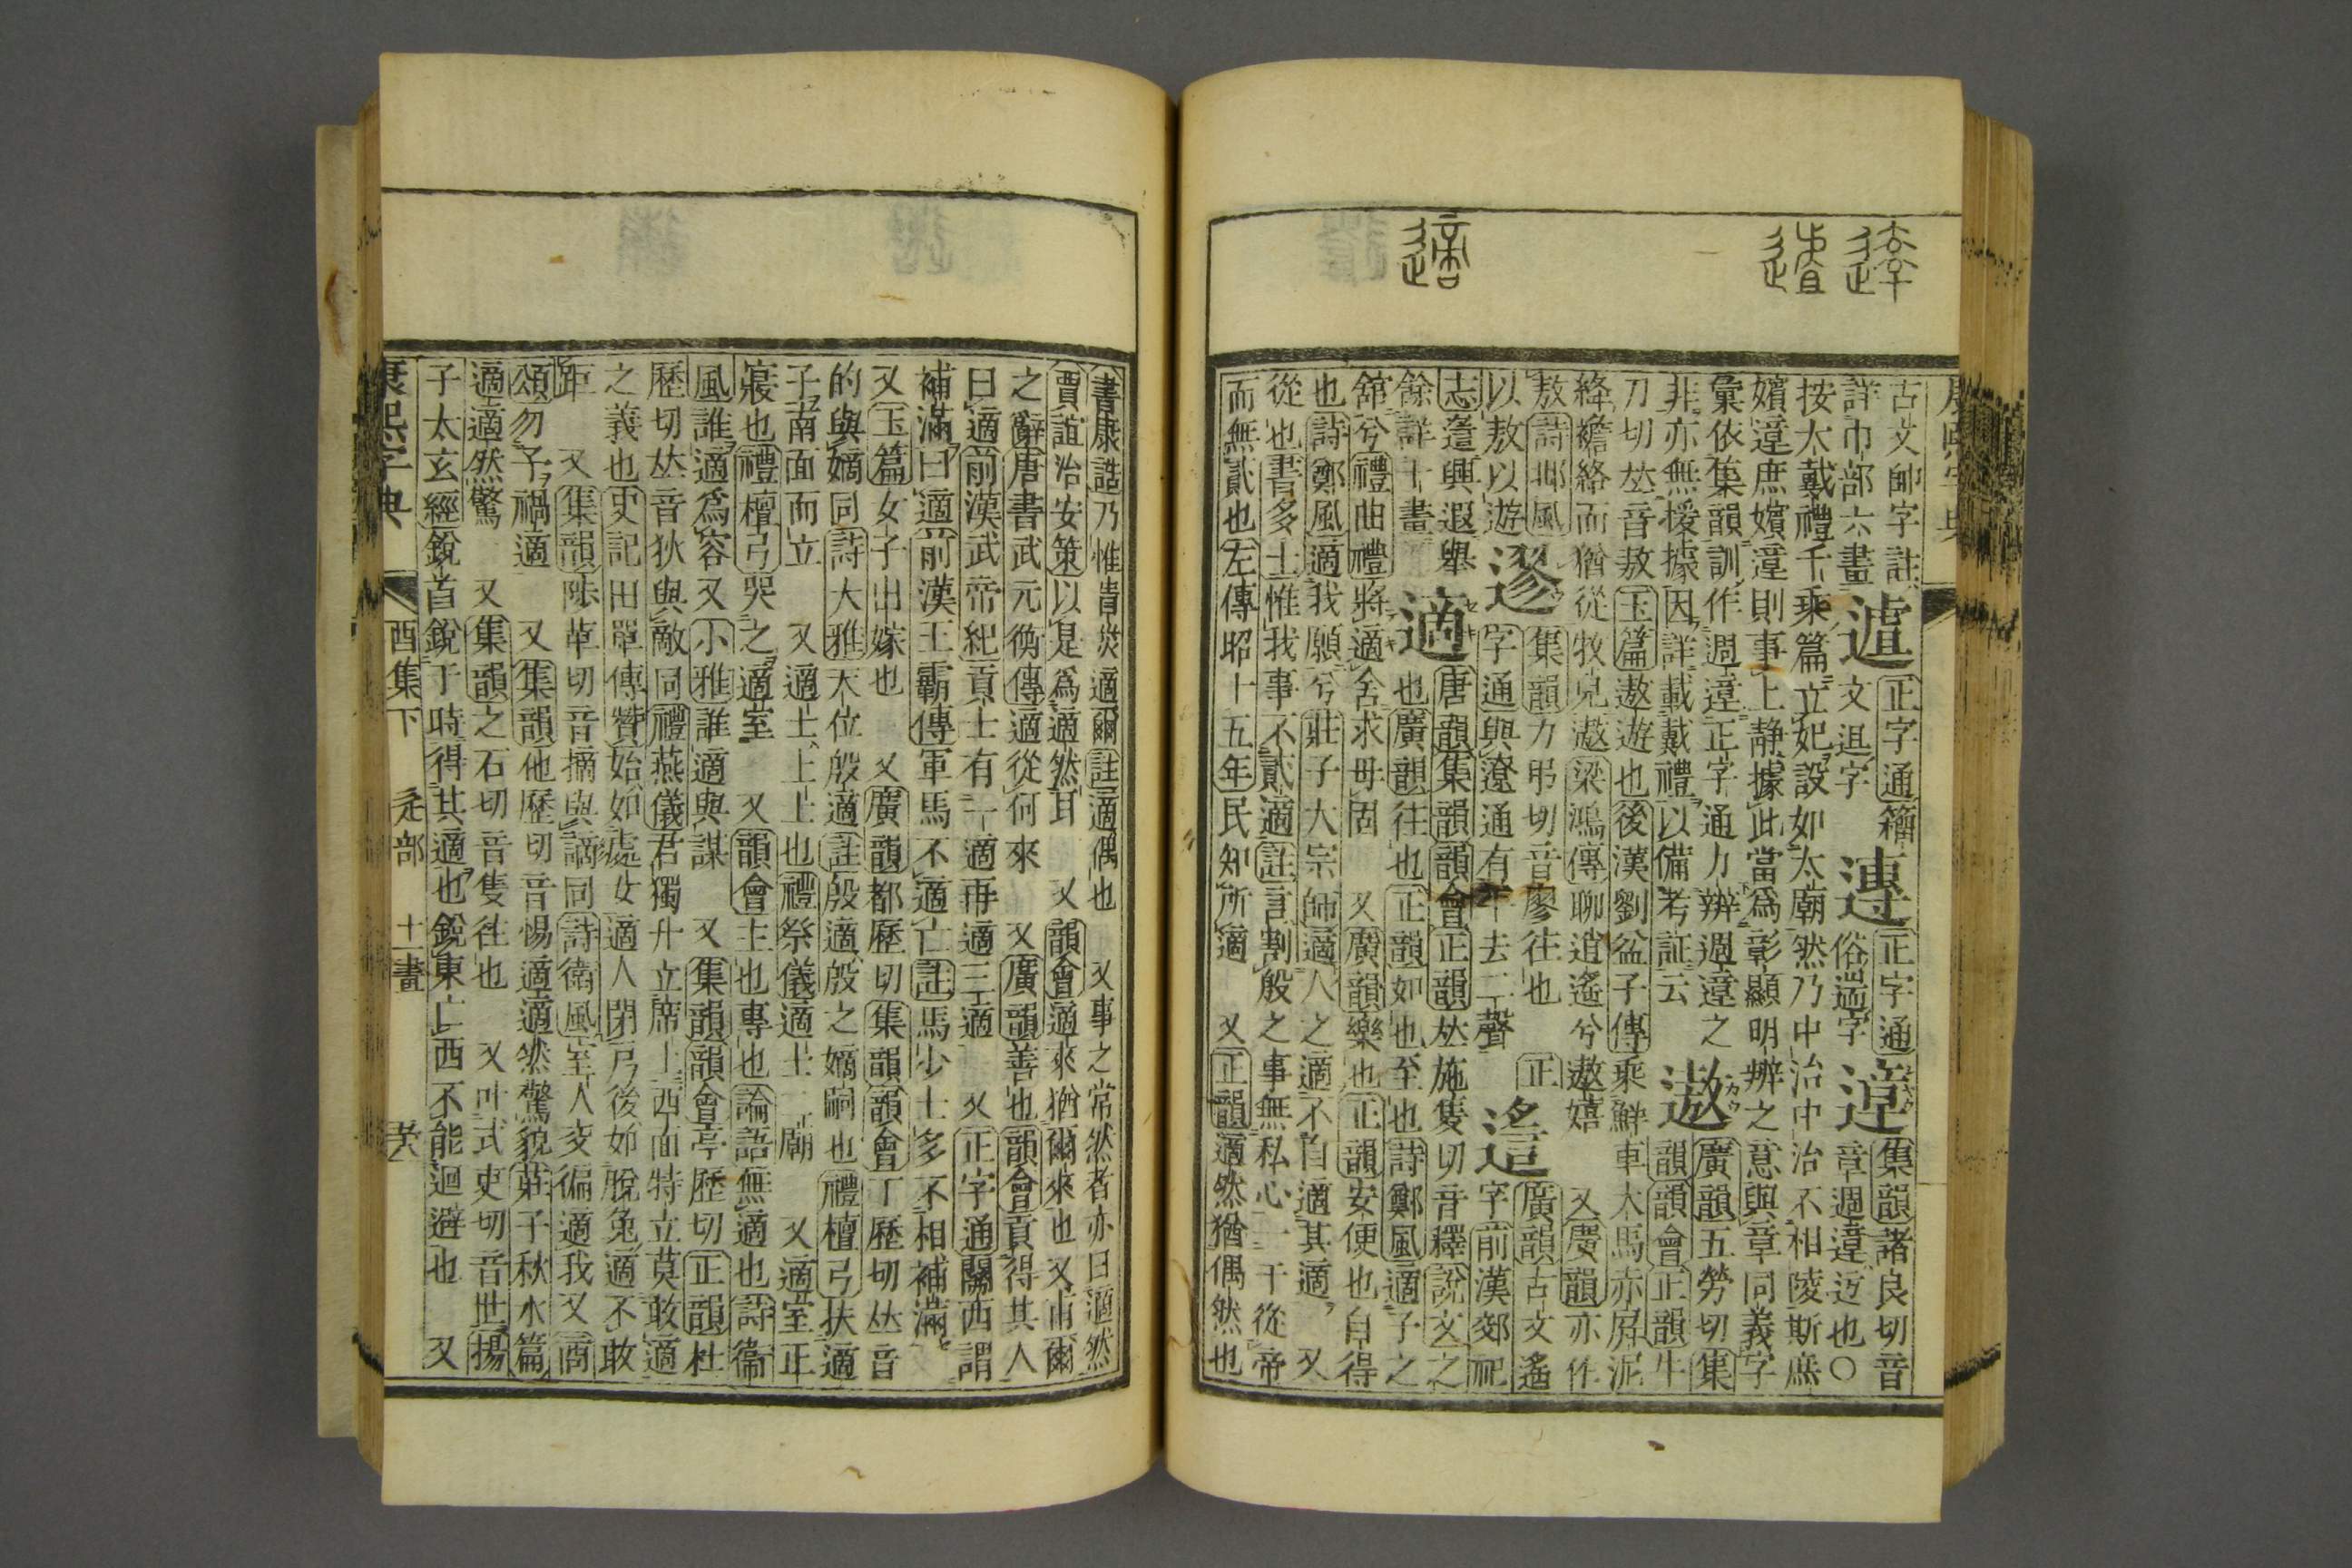 古文師字註
詳巾部六畫
遉
正字通籀
文迌字
正字通
俗遄字
遧
集韻諸良切音
章週遧迈也〇
按大戴禮千乘篇立妃設如太廟然乃中治中治不相陵斯庶
嬪遧庶嬪遧則事上静據此當爲彰顯明辨之意與章同義字
彙依集韻訓作週遧正字通力辨週遧之
非亦無援據因詳載戴禮以備考証云
遨
廣韻五勞切集
韻韻會正韻牛
刀切𠀤音敖玉篇遨遊也後漢劉盆子傳乘鮮車大馬赤屛泥
絳襜絡而猶從牧兒遨梁鴻傳聊逍遙兮遨嬉 又廣韻亦作
敖詩邶風
以敖以遊
邀
集韻力弔切音廖往也 正
字通與遼通有平去二聲
遙
廣韻古文遙
字前漢郊祀
志遙興遐舉
餘詳十畫
適
唐韻集韻韻會正韻𠀤施隻切音釋說文之
也廣韻往也正韻如也至也詩鄭風適子之
館兮禮曲禮將適舍求毋固 又廣韻樂也正韻安便也自得
也詩鄭風適我願兮莊子大宗師適人之適不自適其適 又
從也書多士惟我事不貳適註言割殷之事無私心一于從帝
而無貳也左傳昭十五年民知所適 又正韻適然猶偶然也
書康誥乃惟眚烖適爾註適偶也 又事之常然者亦曰適然
賈誼治安策以是爲適然耳 又韻會適來猶爾來也又甫爾
之辭唐書武元衡傳適從何來 又廣韻善也韻會貢得其人
曰適前漢武帝紀貢士有一適再適三適 又正字通關西謂
補滿曰適前漢王霸傳軍馬不適亡註馬少士多不相補滿
又玉篇女子出嫁也 又廣韻都歷切集韻韻會丁歷切𠀤音
的與嫡同詩大雅天位殷適註殷適殷之嫡嗣也禮檀弓扶適
子南面而立 又適士上士也禮祭儀適士二廟 又適室正
寢也禮檀弓哭之適室 又韻會主也專也論語無適也詩衞
風誰適爲容又小雅誰適與謀 又集韻韻會亭歷切正韻杜
歷切𠀤音狄與敵同禮燕儀君獨升立席上西面特立莫敢適
之義也史記田單傳贊始如處女適人開戸後如脫兔適不敢
距 又集韻陟革切音摘與讁同詩衞風室人交徧適我又商
頌勿予禍適 又集韻他歷切音惕適適然驚貌莊子秋水篇
適適然驚 又集韻之石切音隻往也 又叶式吏切音世揚
子太玄經銳首銳于時得其適也銳東亡西不能迴避也 又
康熙字典
酉集下
辵部
十一畫